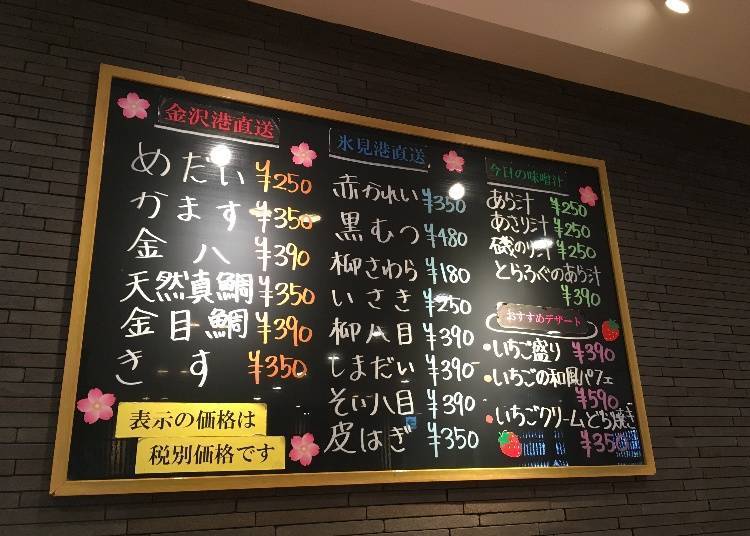 金沢港直送
めだい ¥250
かます ¥350
金八 ¥390
天然真鯛 ¥350
金目鯛 ¥390
きす ¥350
表示の価格は
税別価格です
氷見港直送
赤かれい ¥350
黒むつ ¥480
柳さわら ¥180
いさき ¥250
柳八目 ¥390
しまだい ¥390-
そい八目 ¥390
皮はぎ ¥350
今日の味噌汁
あら汁 ¥250
あさり汁 ¥250
磯のり汁 ¥250
とらふぐのあら汁
¥390
おすすめデザート
・いちご盛り ¥390
・いちごの和風パフェ
¥590
・いちごクリームどら焼き
¥350